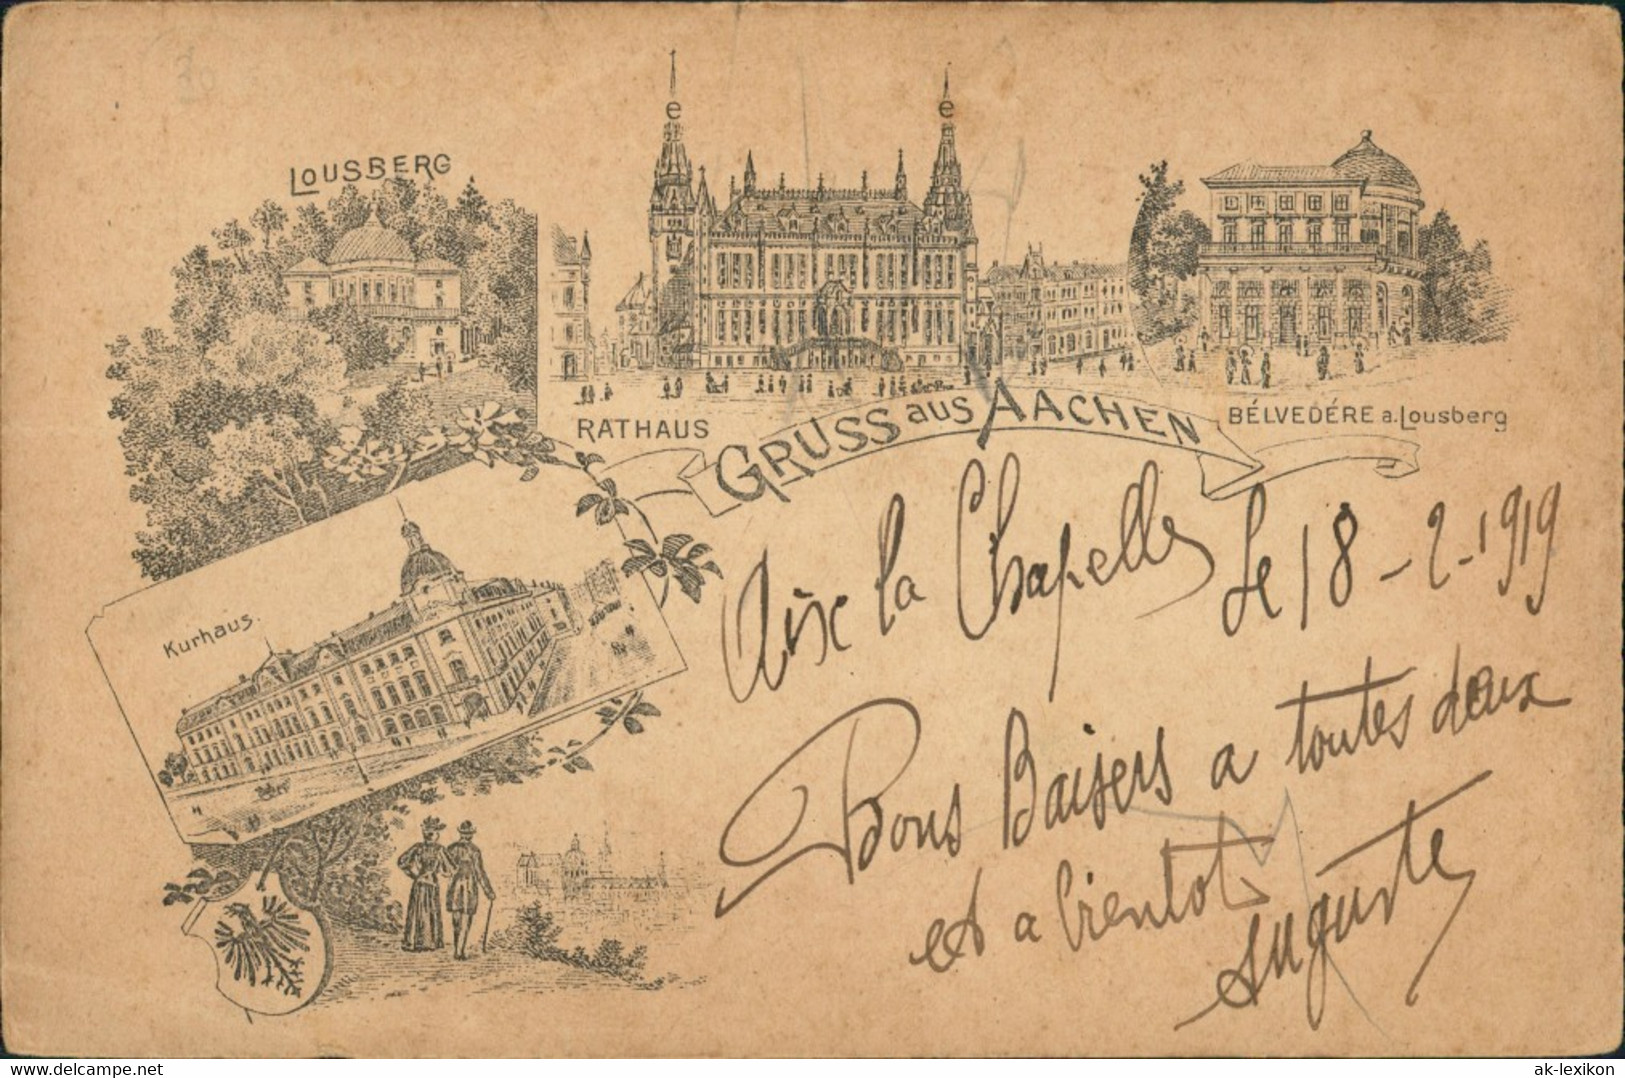 LOUSBERG
RATHAUS
GRUSS aus AACHEN
BÉLVEDÉRE a. Lousberg
Kurhaus.
Aix la Chapelle le 18-2-1919
Bons Baisers a toutes deux
et a bientot
Auguste
delcampe.net
ak-lexikon